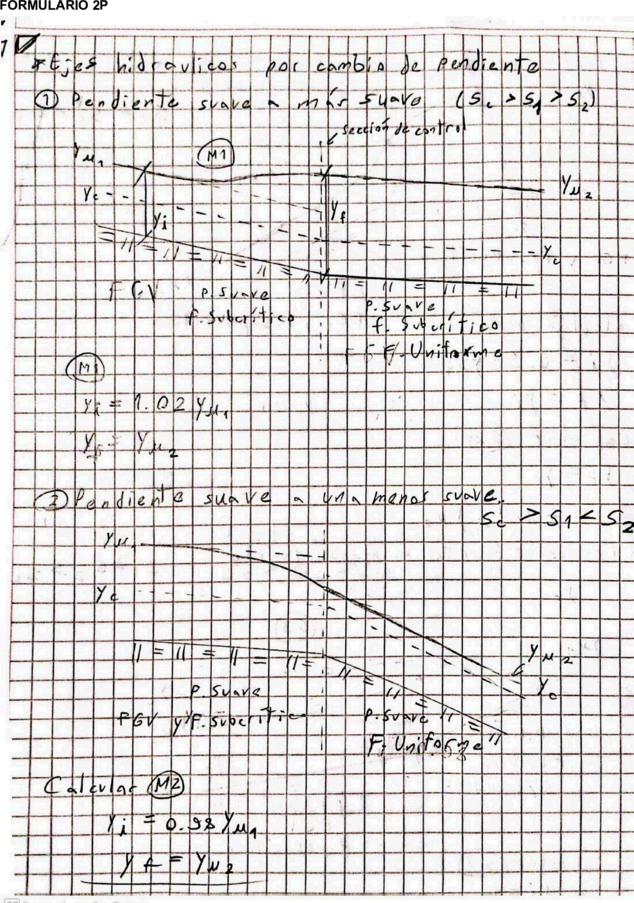 FORMULARIO 2P
1
* Ejes hidravlicos por cambio de pendiente
① Pendiente suave a más suave (Sc > S1 > S2)
sección de control
Yμ1
M1
Yμ2
Yc
Yi
Yf
Yc
FGV
P. Suave
F. Subcrítico
P. Suave
f. Subcrítico
F. Uniforme
M1
Yi = 1.02 Yμ1
Yf = Yμ2
② Pendiente suave a una menos suave.
Sc > S1 < S2
Yμ1
Yc
Yμ2
Yc
P. Suave
FGV y F. subcrítico
P. Suave
F. Uniforme
Calcular M2
Yi = 0.98 Yμ1
Yf = Yμ2